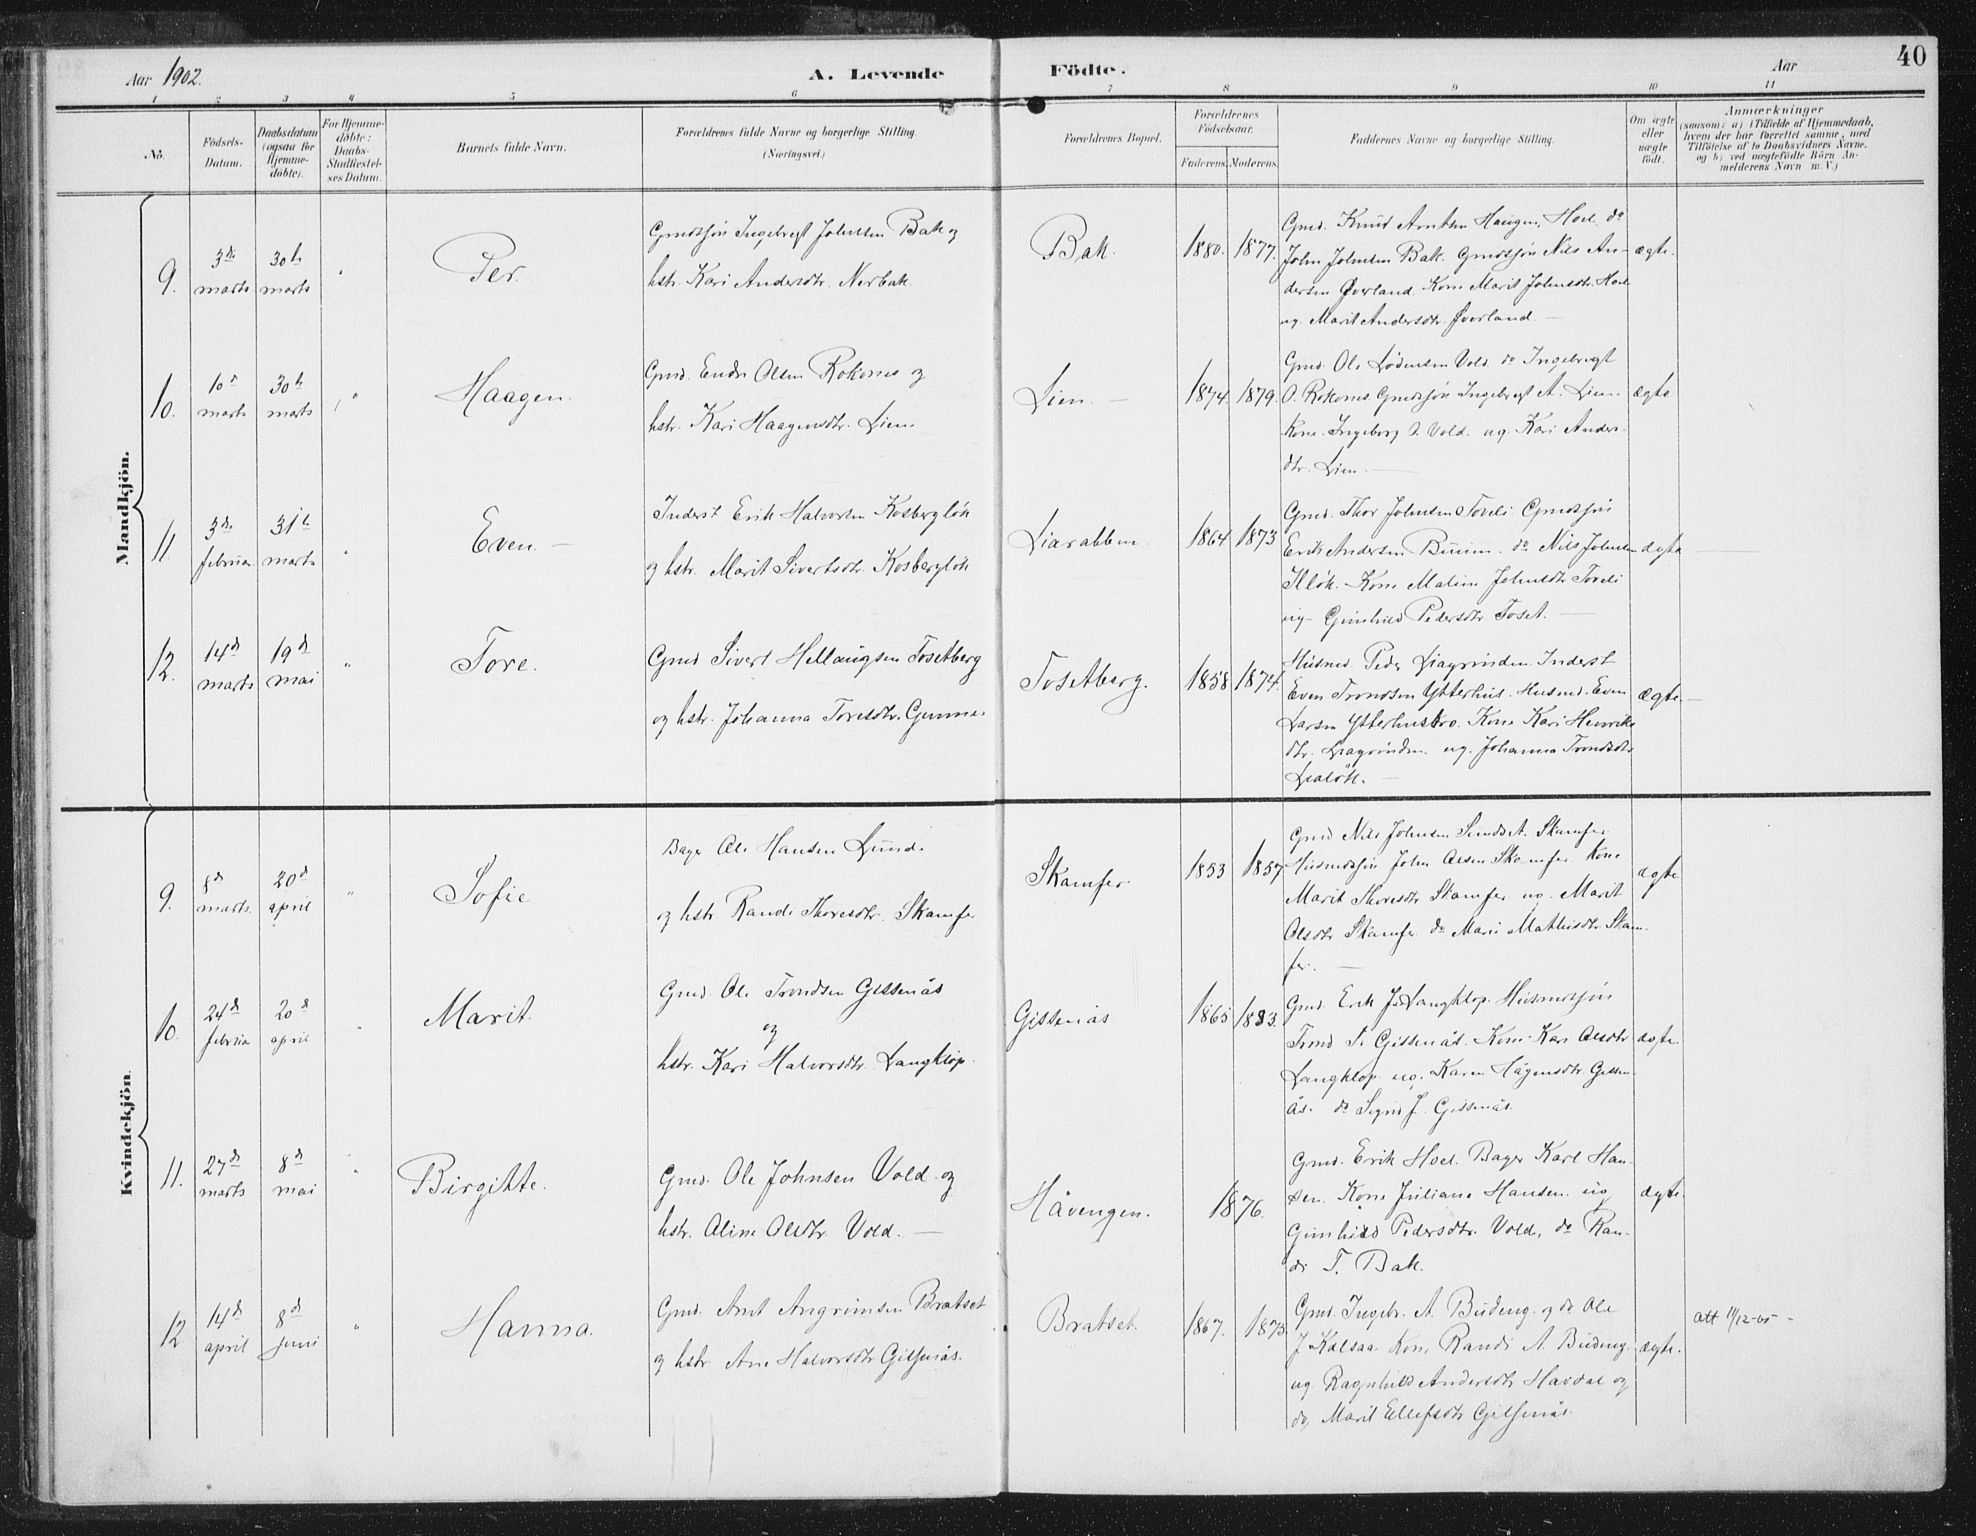 Aar 1902.
A. Levende Födte.
Aar
40
1 2 3 4 5 6 7 8 9 10 11
No.
Födsels-
Datum.
Daabsdatum
(ogsaa for
Hjemme-
döbte).
For Hjemme-
döbte:
Daabs-
Stadfæstel-
ses Datum.
Barnets fulde Navn.
Forældrenes fulde Navne og borgerlige Stilling.
(Næringsvei.)
Forældrenes Bopæl.
Forældrenes
Födselsaar.
Faderens. Moderens.
Faddernes Navne og borgerlige Stilling.
Om ægte
eller
uægte
födt.
Anmærkninger
(saasom: a) i Tilfælde af Hjemmedaab,
hvem der har forrettet samme, med
Tilföielse af to Daabsvidners Navne.
og b) ved uægtefödte Börn An-
melderens Navn m. V.)
Mandkjön.
9.
3die
marts
30te
marts
"
Per.
Gmdsjön Ingebregt Johnsen Bak og
hstr. Kari Andersdtr. Nerbak.
Bak.
1880. 1877.
Gmd. Knud Arntsen Haugen, Hoel. do
John Johnsen Bak. Gmdsjön Nils An-
dersen Øverland. Kone Marit Johnsdtr. Hoel
ug. Marit Andersdtr. Øverland. —
ægte.
10.
10de
marts
30te
marts
"
Haagen.
Gmd. Endre Olsen Rokones og
hstr. Kari Haagensdtr. Lien.
Lien. —
1874. 1879.
Gmd. Ole Lødensen Vold. do Ingebregt
O. Rokones Gmdsjön Ingebregt A. Lien.
Kone. Ingeborg O. Vold. ug. Kari Anders-
dtr. Lien. —
ægte
11.
3die
februar.
31te
marts
"
Even. —
Inderst Erik Halvorsen Kosbergløk
og hstr. Marit Sivertsdtr. Kosbergløk
Liarabben.
1864 1873
Gmd. Thor Johnsen Toveli Gmdsjön
Erik Andersen Buum. do Nils Johnsen
Illøk. Kone Malene Johnsdtr Toveli
ug. Gunhild Pedersdtr Toset. —
ægte
12.
14de
marts
19de
mai
"
Tore.
Gmd Sivert Hellaugsen Tosetberg
og hstr. Johanna Toresdtr. Gunnes
Tosetberg.
1858 1874.
Husmd. Peder Liagrinden. Inderst
Even Trondsen Ytterhus. Husmd. Even
Larsen Ytterhusbro. Kone Kari Henriks
dtr. Liagrinden. ug. Johanna Trondsdtr
Lialøk. —
ægte. —
Kvindekjön.
9.
8de
marts
20de
april
"
Sofie
Bager Ole Hansen Lund.
og hstr Randi Thoresdtr. Skamfer
Skamfer.
1853 1857
Gmd Nils Johnsen Sundset. Skamfer.
Husmdsjön John Olsen Skamfer. Kone
Marit Thoresdtr Skamfer ug. Marit
Olsdtr Skamfer. do Marie Mathisdtr Skam-
fer. —
ægte
10.
24de
februar
20de
april
"
Marit.
Gmd. Ole Trondsen Gissenås
og
hstr. Kari Halvorsdtr. Langklop.
Gissenås
1865 1883.
Gmd. Erik J. Langklop. Husmdsjön
Trond T. Gissenås. Kone Kari Olsdtr
Langklop. ug. Karen Hågensdtr Gissen-
ås. do Sigrid J. Gissenås.
ægte.
11.
27de
marts
8de
mai
"
Birgitte.
Gmd. Ole Johnsen Vold. og
hstr. Aline Olsdtr. Vold. —
Håvengen.
1876.
Gmd. Erik Hoel. Bager Karl Han-
sen. Kone Juliane Hansen. ug
Gunhild Pedersdtr. Vold, do Ran-
di T. Bak.
ægte.
12
14de
april
8de
juni
"
Hanna.
Gmd. Arnt Angrimsen Bratset
og hstr Ane Halvorsdtr Gissenås.
Bratset.
1867. 1875
Gmd. Ingebr. A. Budeng. og do Ole
J Kalsaa. Kone Randi A. Budeng.
ug. Ragnhild Andersdtr Havdal og
do Marit Ellefsdtr Gissenås.
ægte.
Att 11/12-05 -